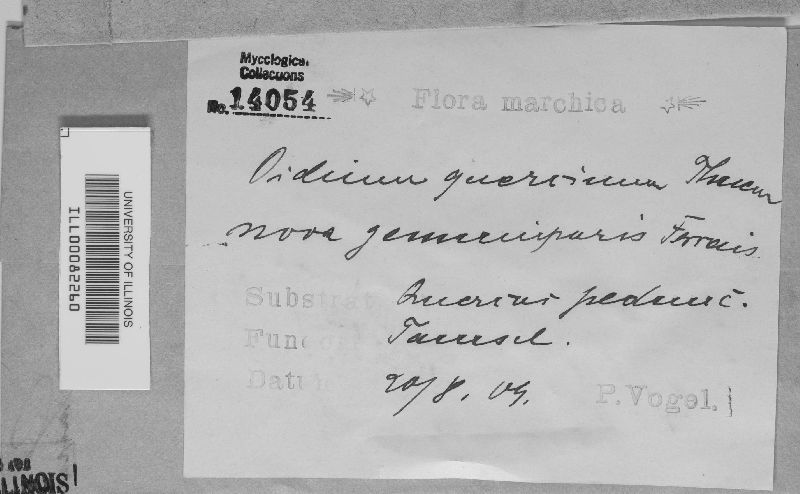 Mycological
Collections
No. 14054
Flora marchica
Oidium quercinum Thuem
nova gemmiparis Ferraris
Substrat Quercus pedunc.
Fundort Tamsel.
Datum 20/8. 09.
P. Vogel.
UNIVERSITY OF ILLINOIS
ILL00082260
ILLINOIS